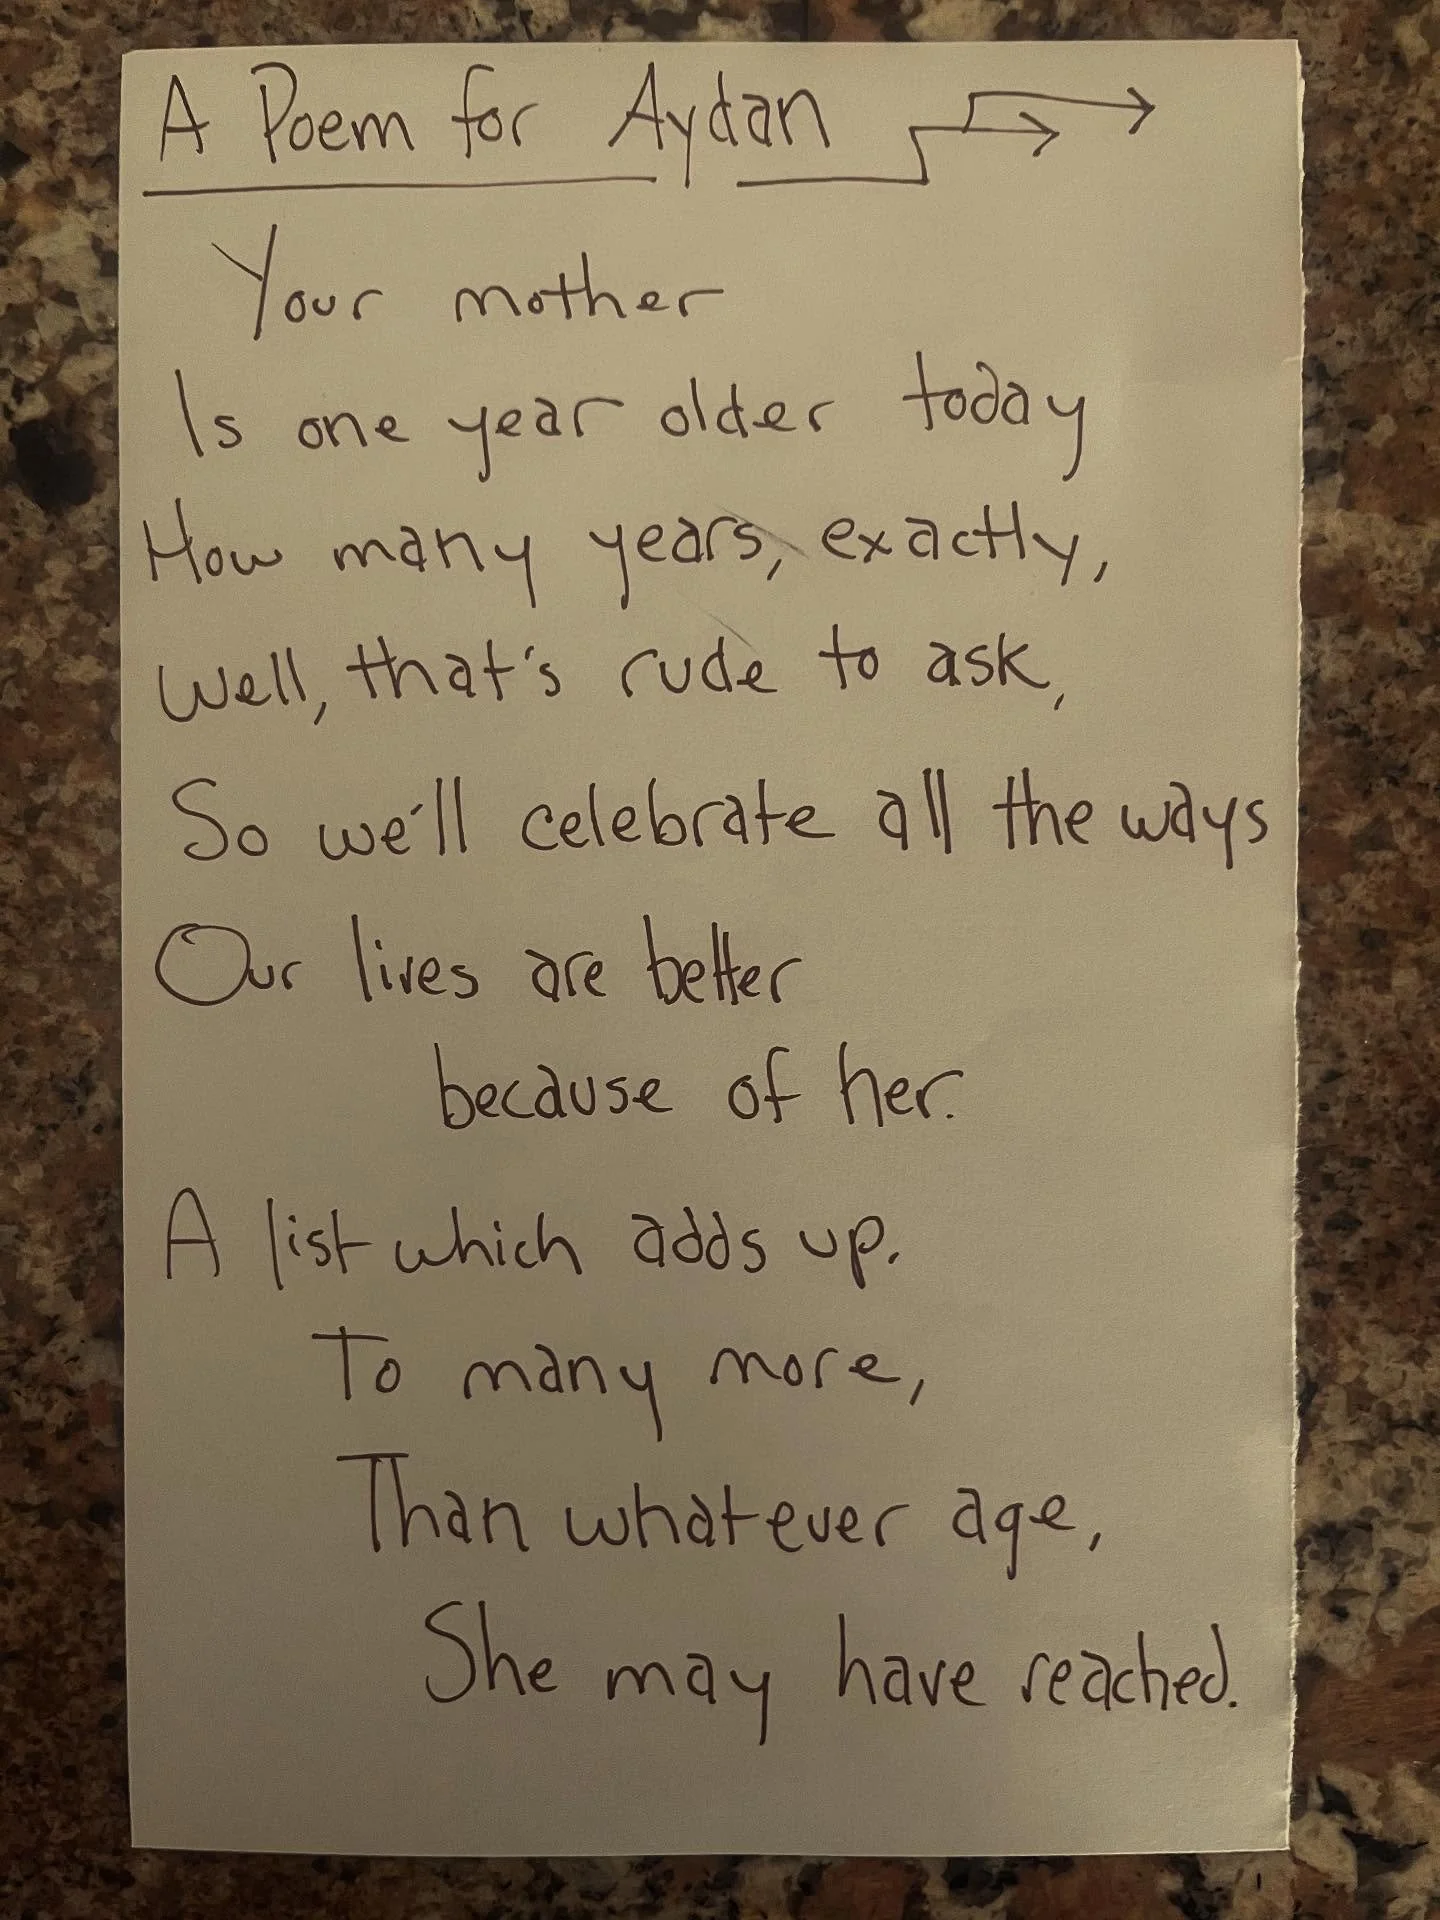 A Poem for Aydan
Your mother
Is one year older today
How many years, exactly,
Well, that's rude to ask,
So we'll celebrate all the ways
Our lives are better
because of her.
A list which adds up.
To many more,
Than whatever age,
She may have reached.